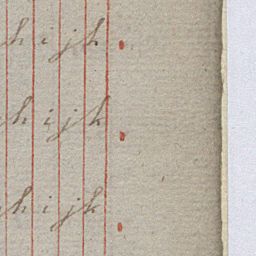 h i j k
h i j k
h i j k